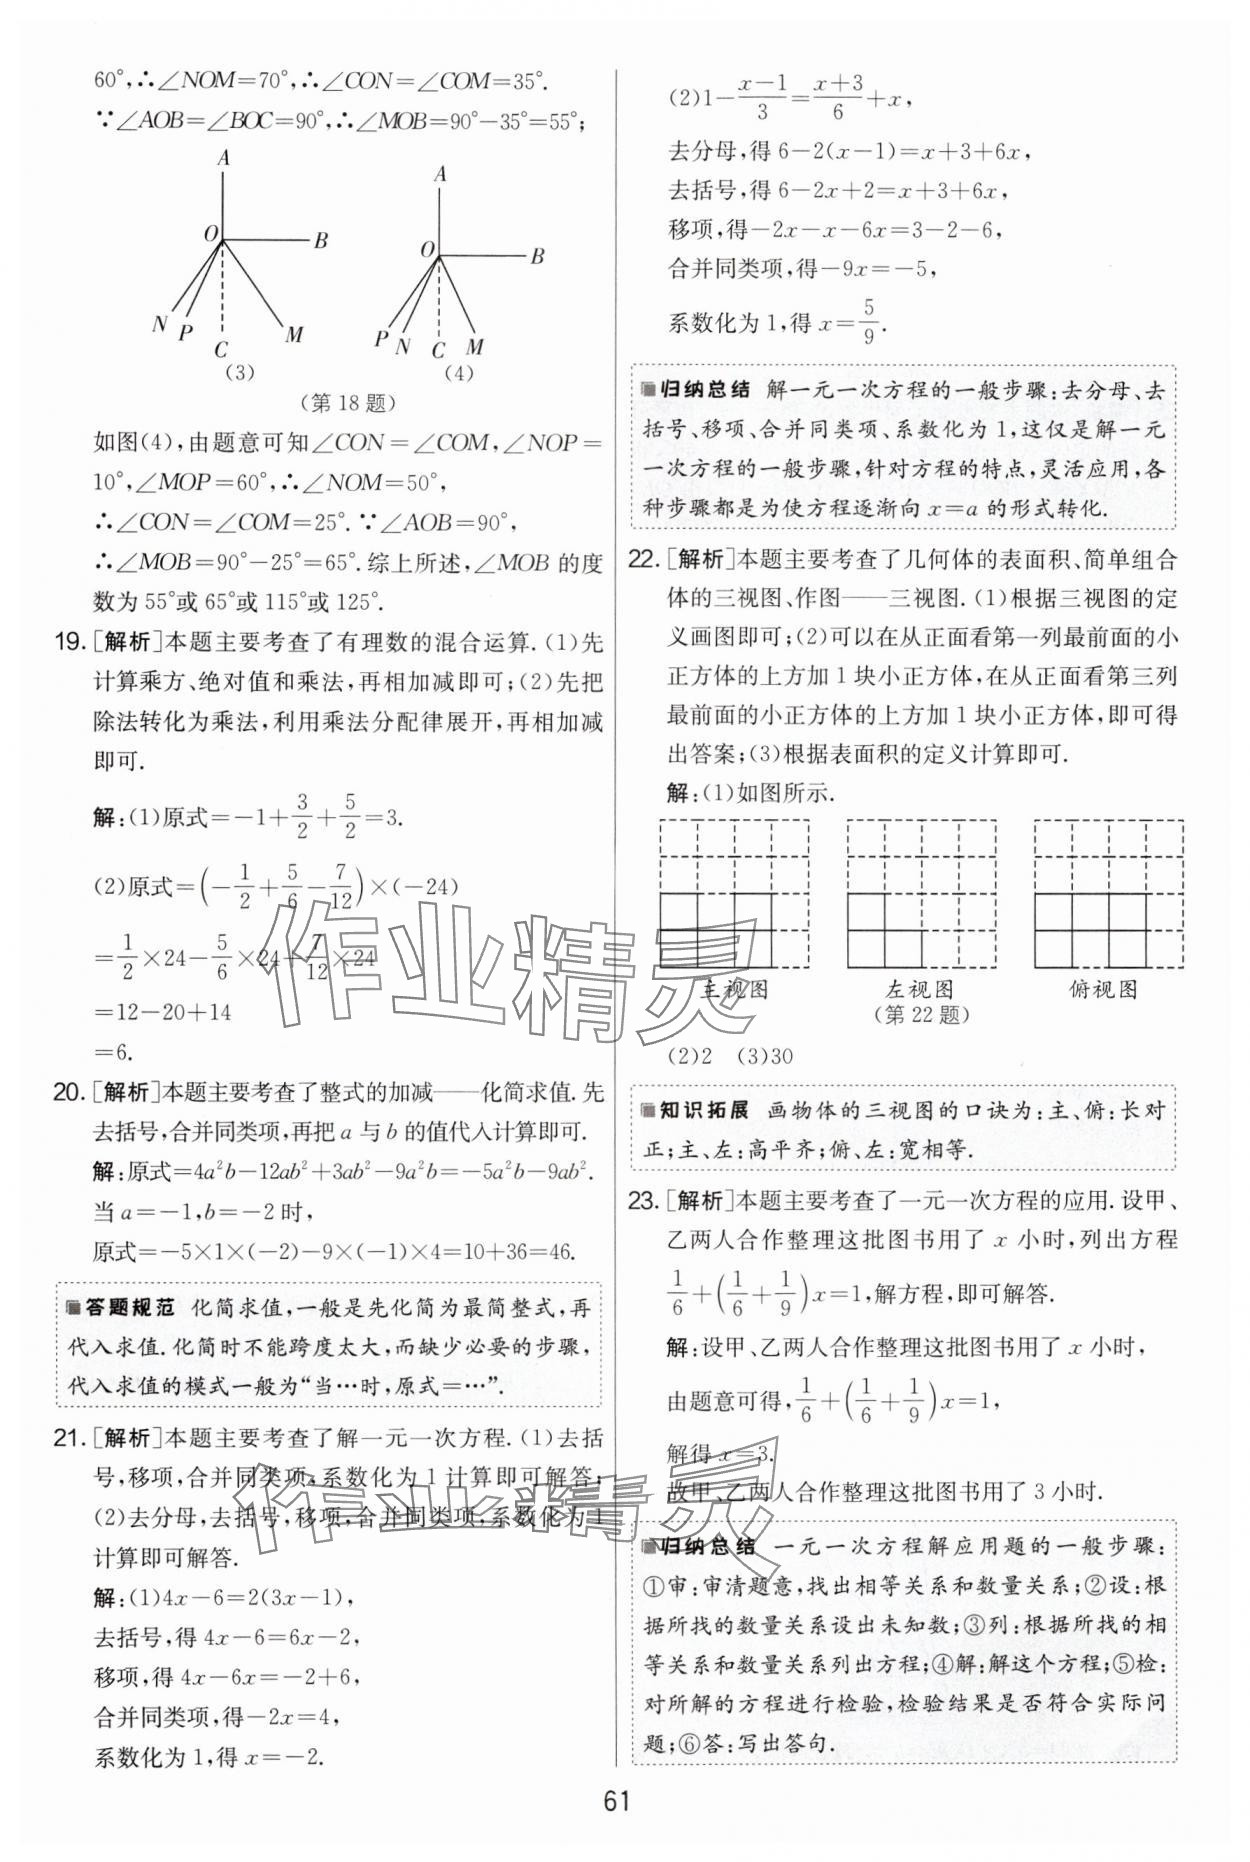 60°,∴∠NOM=70°,∴∠CON=∠COM=35°.
∵∠AOB=∠BOC=90°,∴∠MOB=90°-35°=55°;
A
O
B
N
P
C
M
(3)
A
O
B
P
N
C
M
(4)
(第 18 题)
如图(4),由题意可知∠CON=∠COM,∠NOP=
10°,∠MOP=60°,∴∠NOM=50°,
∴∠CON=∠COM=25°.∵∠AOB=90°,
∴∠MOB=90°-25°=65°.综上所述,∠MOB 的度
数为 55°或 65°或 115°或 125°.
19. [解析]本题主要考查了有理数的混合运算.(1)先
计算乘方、绝对值和乘法,再相加减即可;(2)先把
除法转化为乘法,利用乘法分配律展开,再相加减
即可.
解:(1)原式=-1+3/2+5/2=3.
(2)原式=(-1/2+5/6-7/12)×(-24)
=1/2×24-5/6×24+7/12×24
=12-20+14
=6.
20. [解析]本题主要考查了整式的加减——化简求值.先
去括号,合并同类项,再把 a 与 b 的值代入计算即可.
解:原式=4a²b-12ab²+3ab²-9a²b=-5a²b-9ab².
当 a=-1,b=-2 时,
原式=-5×1×(-2)-9×(-1)×4=10+36=46.
答题规范 化简求值,一般是先化简为最简整式,再
代入求值.化简时不能跨度太大,而缺少必要的步骤,
代入求值的模式一般为“当…时,原式=…”.
21. [解析]本题主要考查了解一元一次方程.(1)去括
号,移项,合并同类项,系数化为 1 计算即可解答;
(2)去分母,去括号,移项,合并同类项,系数化为 1
计算即可解答.
解:(1)4x-6=2(3x-1),
去括号,得 4x-6=6x-2,
移项,得 4x-6x=-2+6,
合并同类项,得-2x=4,
系数化为 1,得 x=-2.
(2)1-(x-1)/3=(x+3)/6+x,
去分母,得 6-2(x-1)=x+3+6x,
去括号,得 6-2x+2=x+3+6x,
移项,得-2x-x-6x=3-2-6,
合并同类项,得-9x=-5,
系数化为 1,得 x=5/9.
归纳总结 解一元一次方程的一般步骤:去分母、去
括号、移项、合并同类项、系数化为 1,这仅是解一元
一次方程的一般步骤,针对方程的特点,灵活应用,各
种步骤都是为使方程逐渐向 x=a 的形式转化.
22. [解析]本题主要考查了几何体的表面积、简单组合
体的三视图、作图——三视图.(1)根据三视图的定
义画图即可;(2)可以在从正面看第一列最前面的小
正方体的上方加 1 块小正方体,在从正面看第三列
最前面的小正方体的上方加 1 块小正方体,即可得
出答案;(3)根据表面积的定义计算即可.
解:(1)如图所示.
主视图 左视图 俯视图
(第 22 题)
(2)2 (3)30
知识拓展 画物体的三视图的口诀为:主、俯:长对
正;主、左:高平齐;俯、左:宽相等.
23. [解析]本题主要考查了一元一次方程的应用.设甲、
乙两人合作整理这批图书用了 x 小时,列出方程
1/6+(1/6+1/9)x=1,解方程,即可解答.
解:设甲、乙两人合作整理这批图书用了 x 小时,
由题意可得,1/6+(1/6+1/9)x=1,
解得 x=3.
故甲、乙两人合作整理这批图书用了 3 小时.
归纳总结 一元一次方程解应用题的一般步骤:
①审:审清题意,找出相等关系和数量关系;②设:根
据所找的数量关系设出未知数;③列:根据所找的相
等关系和数量关系列出方程;④解:解这个方程;⑤检:
对所解的方程进行检验,检验结果是否符合实际问
题;⑥答:写出答句.
61
作业精灵
作业精灵